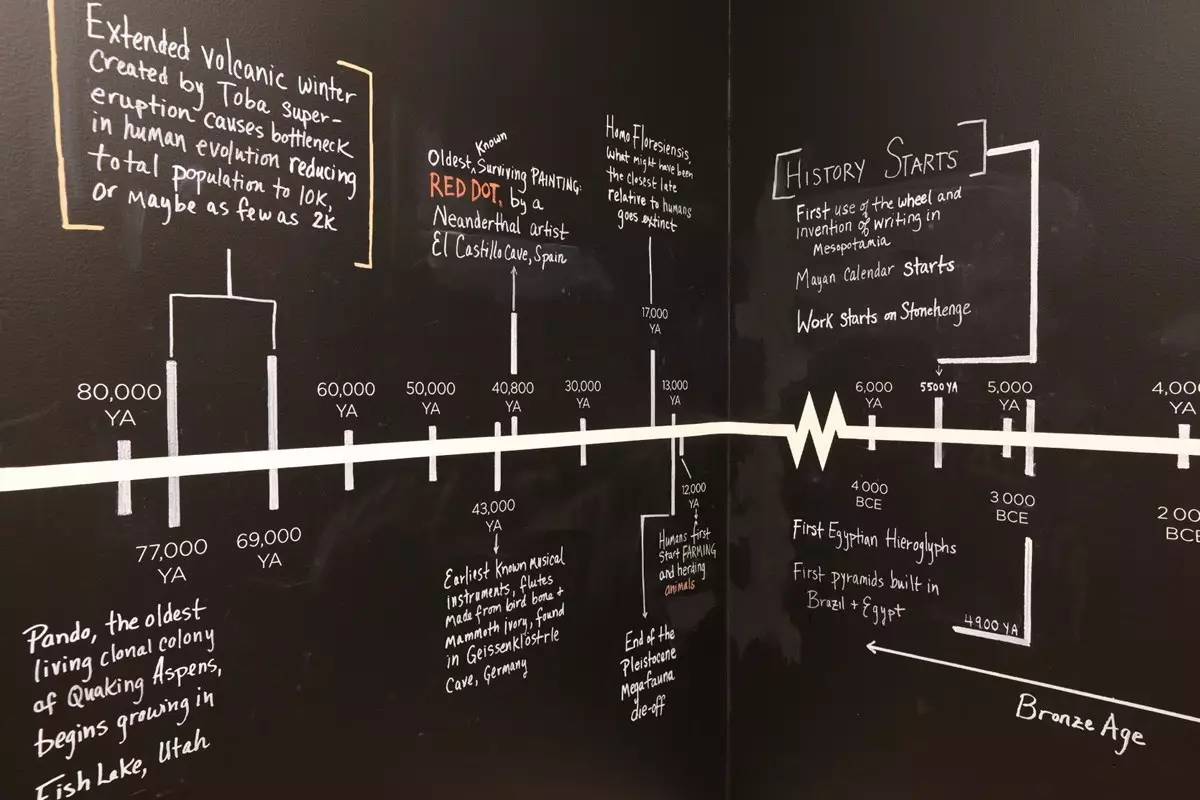 Extended volcanic winter
Created by Toba super-
eruption causes bottleneck
in human evolution reducing
total population to 10K,
or maybe as few as 2K
Known
Oldest ^ Surviving PAINTING:
RED DOT, by a
Neanderthal artist
El Castillo Cave, Spain
Homo Floresiensis,
what might have been
the closest late
relative to humans
goes extinct
[HISTORY STARTS]
First use of the wheel and
invention of writing in
Mesopotamia
Mayan Calendar Starts
Work Starts on Stonehenge
80,000
YA
60,000
YA
50,000
YA
40,800
YA
30,000
YA
17,000
YA
13,000
YA
6,000
YA
5500 YA
5,000
YA
77,000
YA
69,000
YA
43,000
YA
12,000
YA
4000
BCE
3000
BCE
Pando, the oldest
living clonal colony
of Quaking Aspens,
begins growing in
Fish Lake, Utah
Earliest Known Musical
instruments, flutes
Made from bird bone +
Mammoth ivory, found
in Geissenklöstrle
Cave, Germany
Humans first
Start FARMING
and herding
animals
End of the
Pleistocene
Megafauna
die-off
First Egyptian Hieroglyphs
First pyramids built in
Brazil + Egypt
4900 YA
Bronze Age